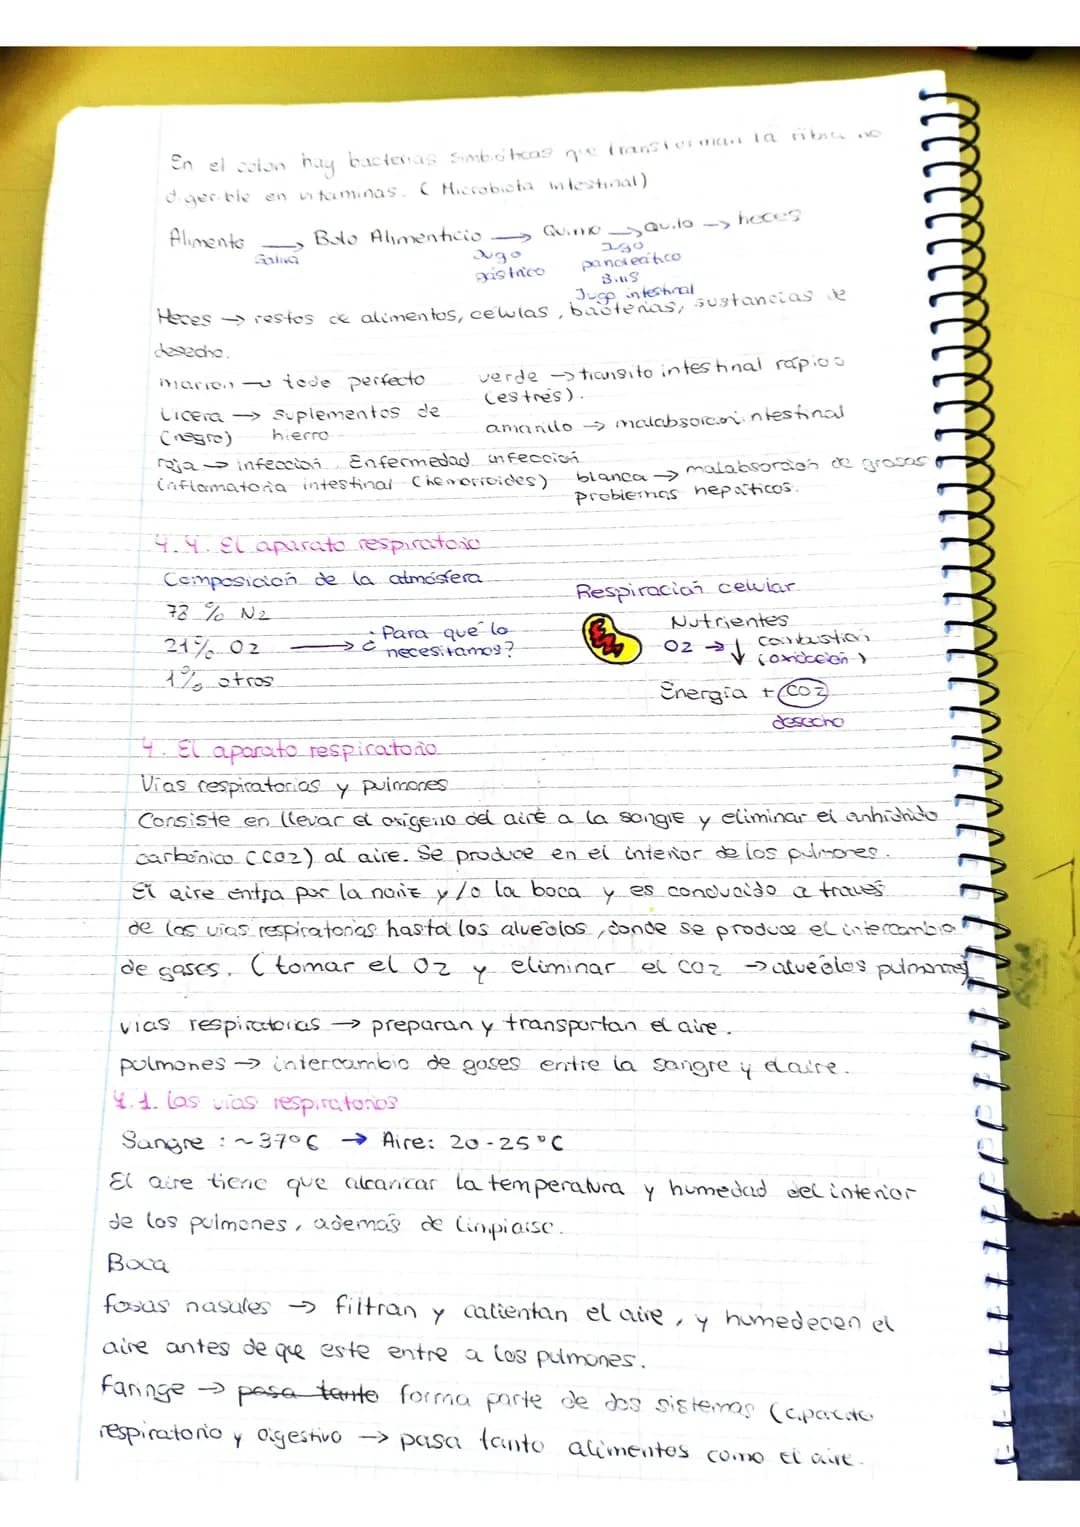 En el colon hay bacterias simbióticas que transforman la fibra no
digerible en vitaminas. (Microbiota intestinal)
Alimento → Bolo Alimenticio → Quimo → Quilo → heces
Saliva
Jugo
gástrico
Jugo
pancreático
Bilis
Jugo intestinal
Heces → restos de alimentos, celulas, bacterias, sustancias de
desecho.
marron → todo perfecto
verde → transito intestinal rápido
(estrés).
Licera → suplementos de
(negro) hierro
amarillo → malabsorcion intestinal
roja → infección. Enfermedad infección
inflamatoria intestinal (hemorroides)
blanca → malabsorción de grasas
problemas hepáticos.
4.4. El aparato respiratorio
Composición de la atmósfera
78 % N2
21% O2 → ¿Para qué lo
necesitamos?
1% otros
Respiración celular
Nutrientes
O2 → ↓ combustión
(oxidación)
Energía + CO2
desecho
4. El aparato respiratorio
Vías respiratorias y pulmones
Consiste en llevar el oxígeno del aire a la sangre y eliminar el anhídrido
carbónico (CO2) al aire. Se produce en el interior de los pulmones.
El aire entra por la nariz y/o la boca y es conducido a través
de las vías respiratorias hasta los alveólos, donde se produce el intercambio
de gases. (tomar el O2 y eliminar el CO2 → alveólos pulmonares)
vías respiratorias → preparan y transportan el aire.
pulmones → intercambio de gases entre la sangre y el aire.
4.1. las vías respiratorias
Sangre : ~37°C → Aire: 20-25°C
El aire tiene que alcanzar la temperatura y humedad del interior
de los pulmones, además de limpiarse.
Boca
fosas nasales → filtran y calientan el aire, y humedecen el
aire antes de que este entre a los pulmones.
faringe → pasa tanto forma parte de dos sistemas (aparato
respiratorio y digestivo → pasa tanto alimentos como el aire.